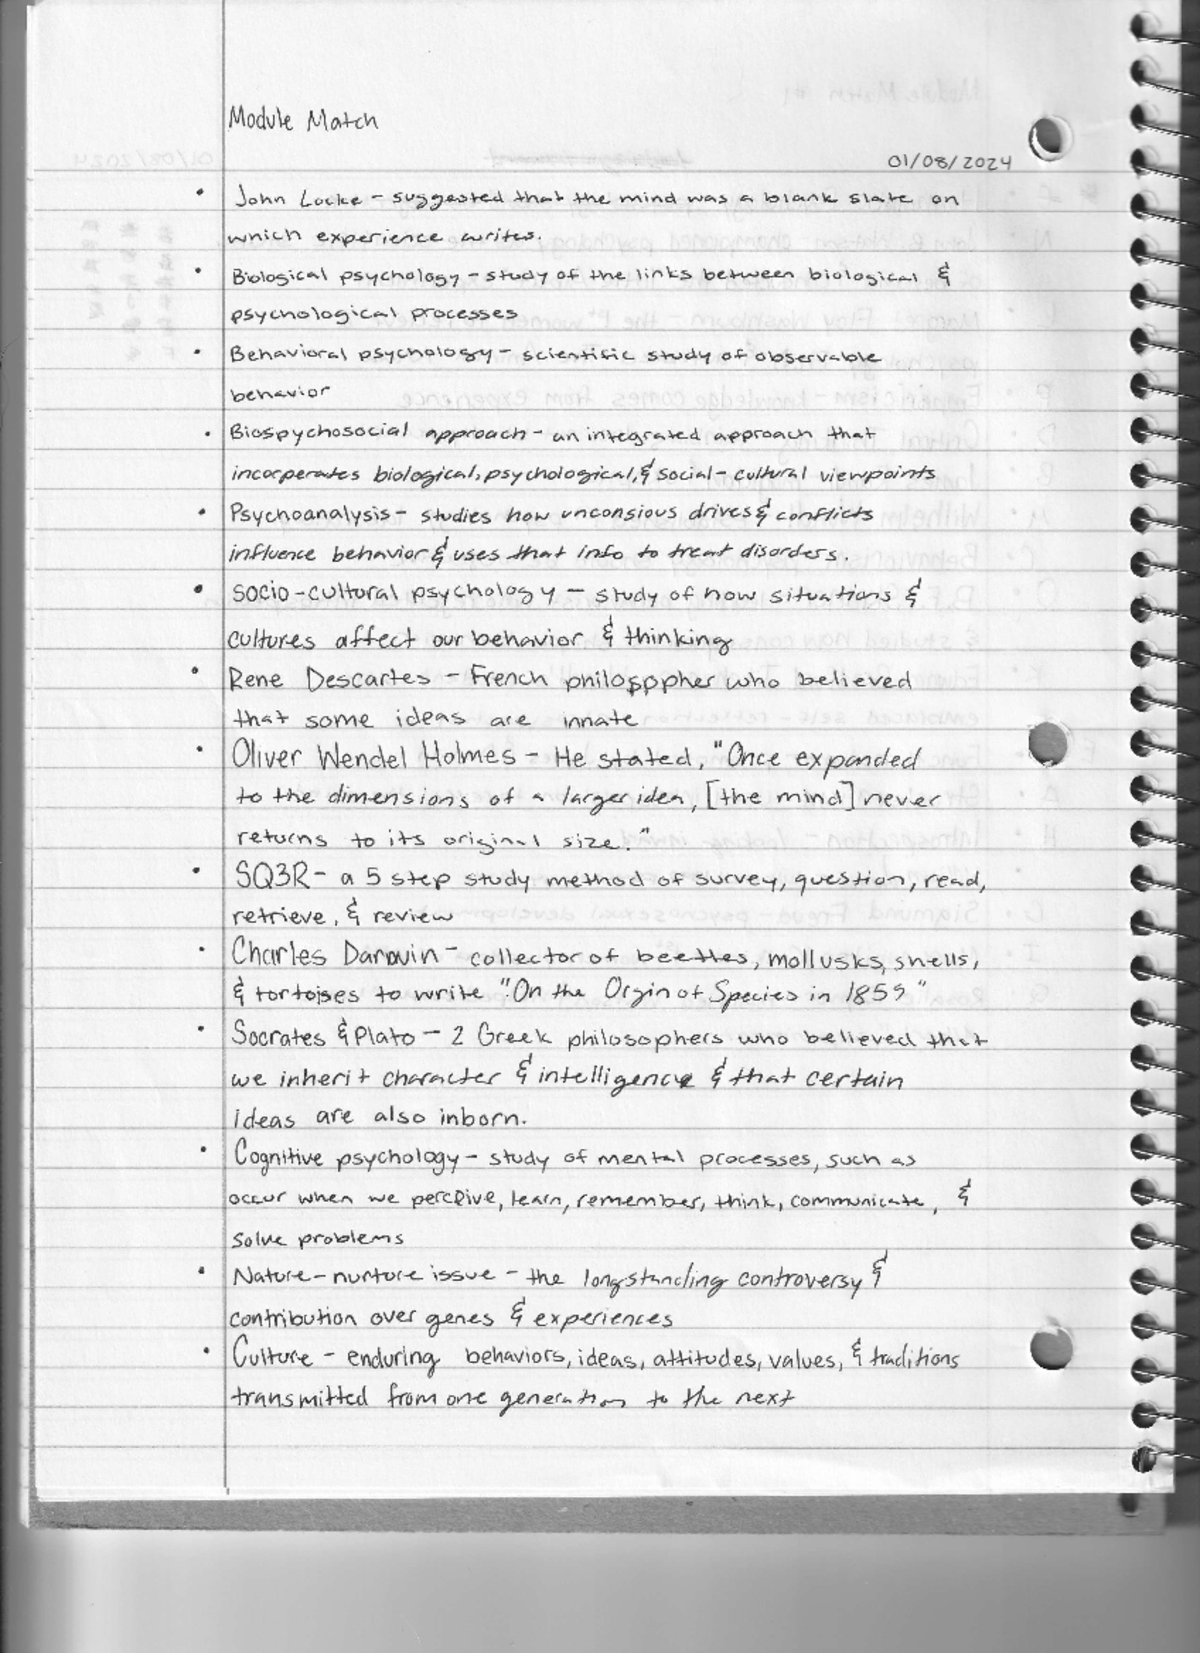 Module Match
01/08/2024
• John Locke - suggested that the mind was a blank slate on
which experience writes.
• Biological psychology - study of the links between biological &
psychological processes
• Behavioral psychology - scientific study of observable
behavior
• Biospychosocial approach - an integrated approach that
incorperates biological, psychological, & social-cultural viewpoints
• Psychoanalysis - studies how unconsious drives & conflicts
influence behavior & uses that info to treat disorders.
• Socio-cultural psychology - study of how situations &
cultures affect our behavior & thinking
• Rene Descartes - French philosppher who believed
that some ideas are innate
• Oliver Wendel Holmes - He stated, "Once expanded
to the dimensions of a larger idea, [the mind] never
returns to its original size."
• SQ3R - a 5 step study method of survey, question, read,
retrieve, & review
• Charles Darwin - collector of beetles, mollusks, shells,
& tortoises to write "On the Orgin of Species in 1859"
• Socrates & Plato - 2 Greek philosophers who believed that
we inherit character & intelligence & that certain
ideas are also inborn.
• Cognitive psychology - study of mental processes, such as
occur when we perceive, learn, remember, think, communicate, &
solve problems
• Nature-nurture issue - the longstanding controversy &
contribution over genes & experiences
• Culture - enduring behaviors, ideas, attitudes, values, & traditions
transmitted from one generation to the next